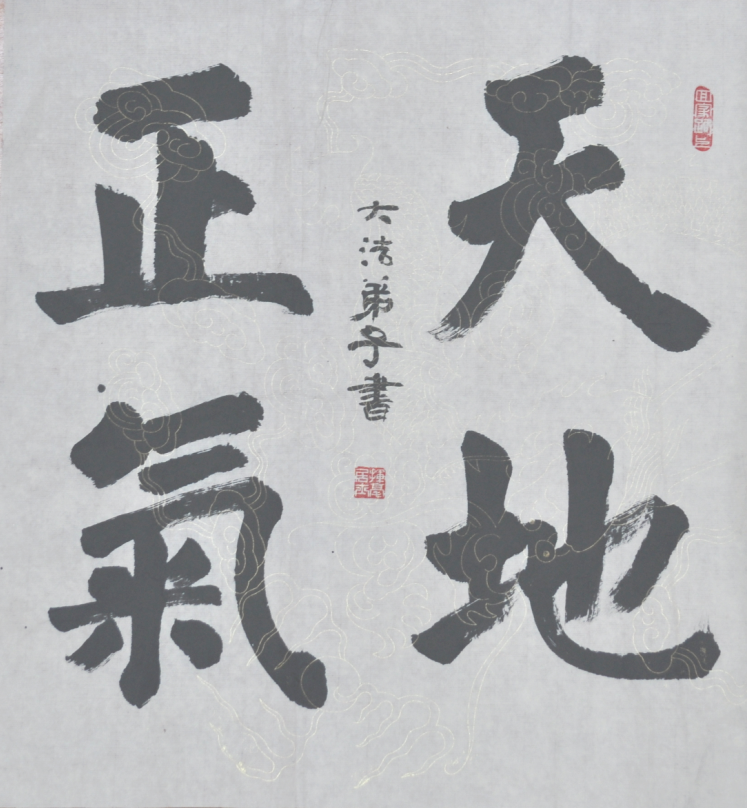 天地
正氣
大法弟子書